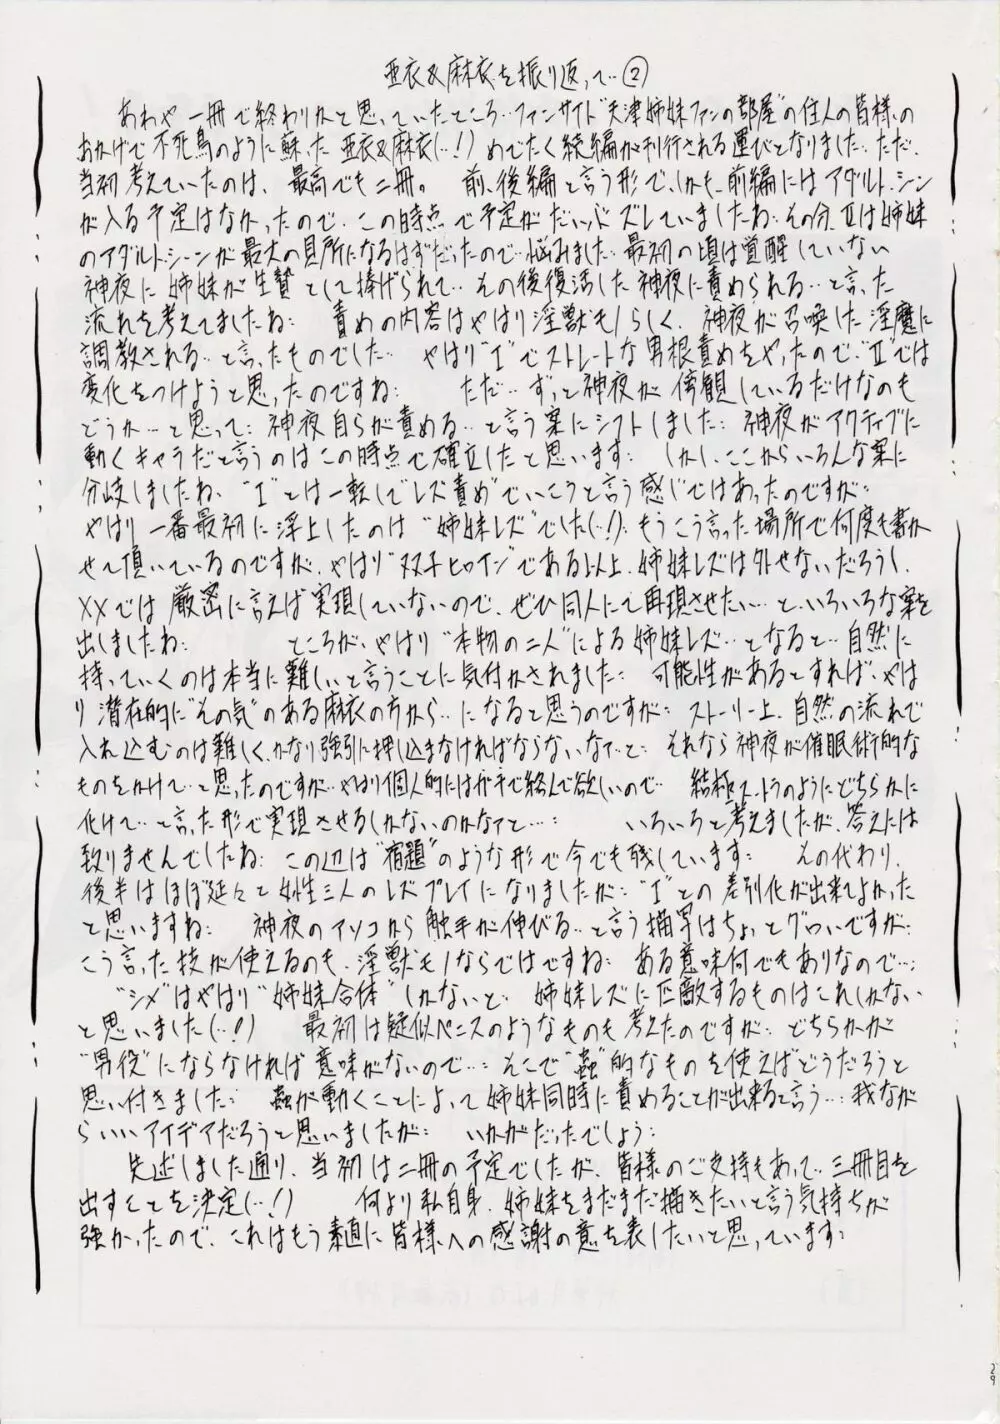 亜衣&麻衣を振り返って‥②
あわや一冊で終わりかと思っていたところ‥ファンサイト"天津姉妹ファンの部屋"の住人の皆様の
おかげで不死鳥のように蘇った亜衣&麻衣(‥!)めでたく続編が刊行される運びとなりました‥ただ‥
当初考えていたのは、最高でも二冊。前、後編と言う形で、しかも、前編にはアダルト・シーン
が入る予定はなかったので、この時点で予定がだいぶズレていましたね‥その分、Ⅱは姉妹
のアダルト・シーンが最大の見所になるはずだったので‥悩みました‥最初の頃は覚醒していない
神夜に姉妹が生贄として捧げられて‥その後復活した神夜に責められる‥と言った
流れを考えてましたね‥責めの内容はやはり淫獣モノらしく、神夜が召喚した淫魔に
調教される‥と言ったものでした‥やはり"Ⅰ"でストレートな男根責めをやったので、"Ⅱ"では
変化をつけようと思ったのですね‥ただ‥ずっと神夜が傍観しているだけなのも
どうか‥と思って‥神夜自らが責める‥と言う案にシフトしました‥神夜がアクティブに
動くキャラだと言うのはこの時点で確立したと思います‥しかし、ここからいろんな案に
分岐しましたね、"Ⅰ"とは一転して"レズ責め"でいこうと言う感じではあったのですが‥
やはり一番最初に浮上したのは"姉妹レズ"でした(‥!)‥もうこう言った場所で何度も書か
せて頂いているのですが、やはり"双子ヒロイン"である以上、姉妹レズは外せないだろうし、
XXでは厳密に言えば実現していないので、ぜひ同人にて再現させたい‥と、いろいろな案を
出しましたね‥ところが、やはり"本物の二人"による姉妹レズ‥となると‥自然に
持っていくのは本当に難しいと言うことに気付かされました‥可能性があるとすれば、やは
り潜在的に"その気"のある麻衣の方から‥になると思うのですが‥ストーリー上、自然の流れで
入れ込むのは難しく、かなり強引に押し込まなければならないなァ‥と‥それなら神夜が催眠術的な
ものをかけて‥と思ったのですが‥やはり個人的にはガチで絡んで欲しいので‥結極ストラのようにどちらかに
化けて‥と言った形で実現させるしかないのかなァと‥‥いろいろと考えましたが、答えには
致りませんでしたね‥この辺は"宿題"のような形で今でも残しています‥その代わり、
後半はほぼ延々と女性三人のレズプレイになりましたが‥"Ⅰ"との差別化が出来てよかった
と思いますね‥神夜のアソコから触手が伸びる‥と言う描写はちょっとグロいですが‥
こう言った技が使えるのも、淫獣モノならではですね‥ある意味何でもありなので‥‥
"シメ"はやはり"姉妹合体"しかないと‥姉妹レズに匹敵するものはこれしかない
と思いました(‥!)最初は疑似ペニスのようなものも考えたのですが‥どちらかが
"男役"にならなければ意味がないので‥‥そこで"蟲"的なものを使えばどうだろうと
思い付きました‥蟲が動くことによって姉妹同時に責めることが出来ると言う‥‥我なが
らいいアイデアだろうと思いましたが‥いかがだったでしょう‥
先述しました通り、当初は二冊の予定でしたが、皆様のご支持もあって‥三冊目を
出すことを決定(‥!)何より私自身、姉妹をまだまだ描きたいと言う気持ちが
強かったので、これはもう素直に皆様への感謝の意を表したいと思っています‥
29